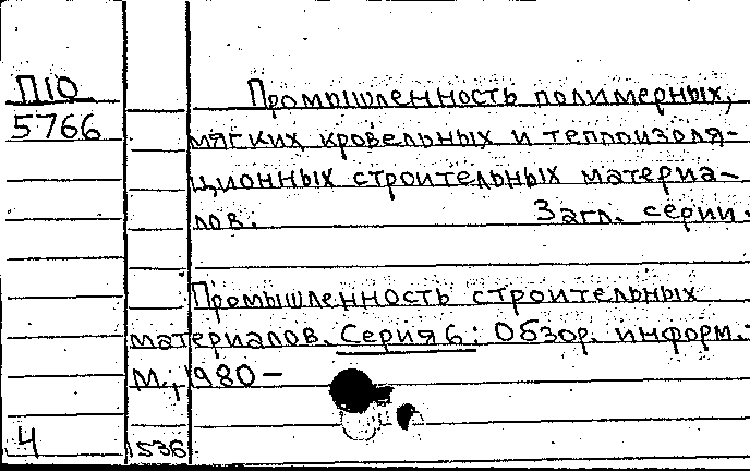 П10
5766
Промышленность полимерных,
мягких кровельных и теплоизоля-
ционных строительных материа-
лов. Загл. серии.
Промышленность строительных
материалов. Серия 6: Обзор. информ.
М., 1980 –
4 1536